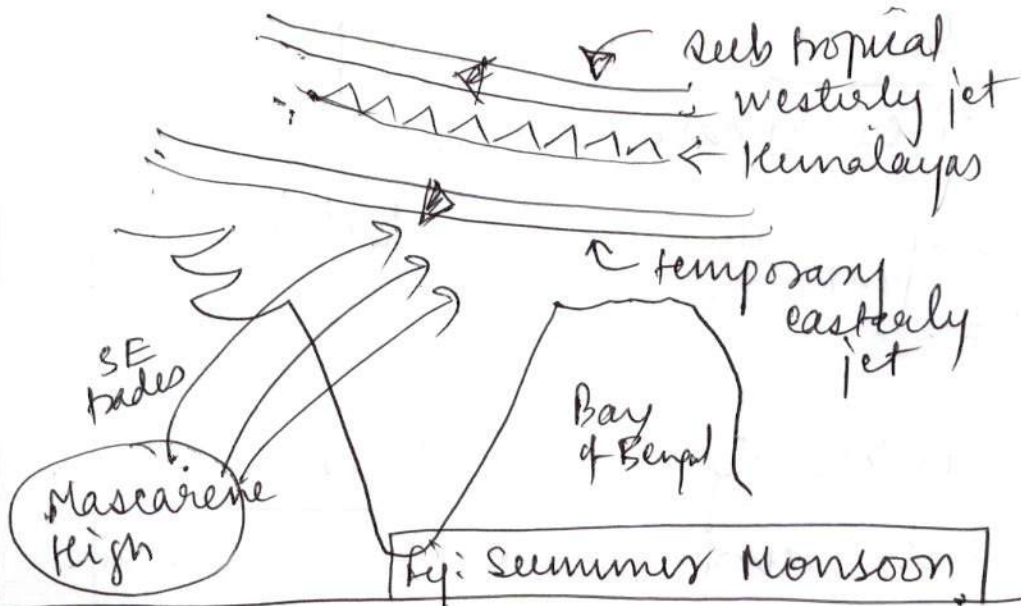 sub tropical
westerly jet
← Himalayas
temporary
easterly
jet
SE
trades
Bay
of Bengal
Mascarene
High
Fig: Summer Monsoon